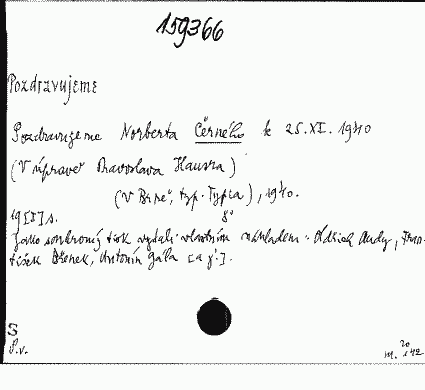 159366
Pozdravujeme
Pozdravujeme Norberta Černého k 25. XI. 1940
(V úpravě Pravoslava Hauska)
(V Brně, typ. Typia), 1940.
19 [I] s. 8°
Jako soukromý tisk vydali vlastním nákladem: Oldřich Audy, Fran-
tišek Břenek, Antonín Gála [a j.].
S
P.v.
m. 20 142